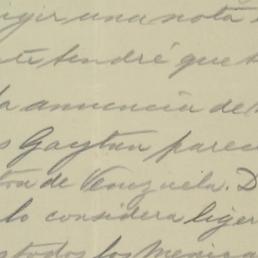 igir una nota
te tendré que
la anuencia de
s Gaytan parec
tor de Venezuela. D
lo considera liger
s todos los Mexica